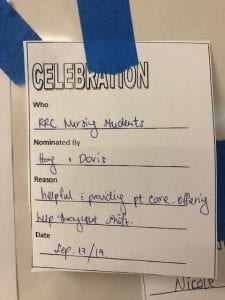 CELEBRATION
Who
RRC Nursing Students
Nominated By
Hong & Doris
Reason
helpful i providing pt care. offering
help throughout shift.
Date
Sep. 17/19
Nicole